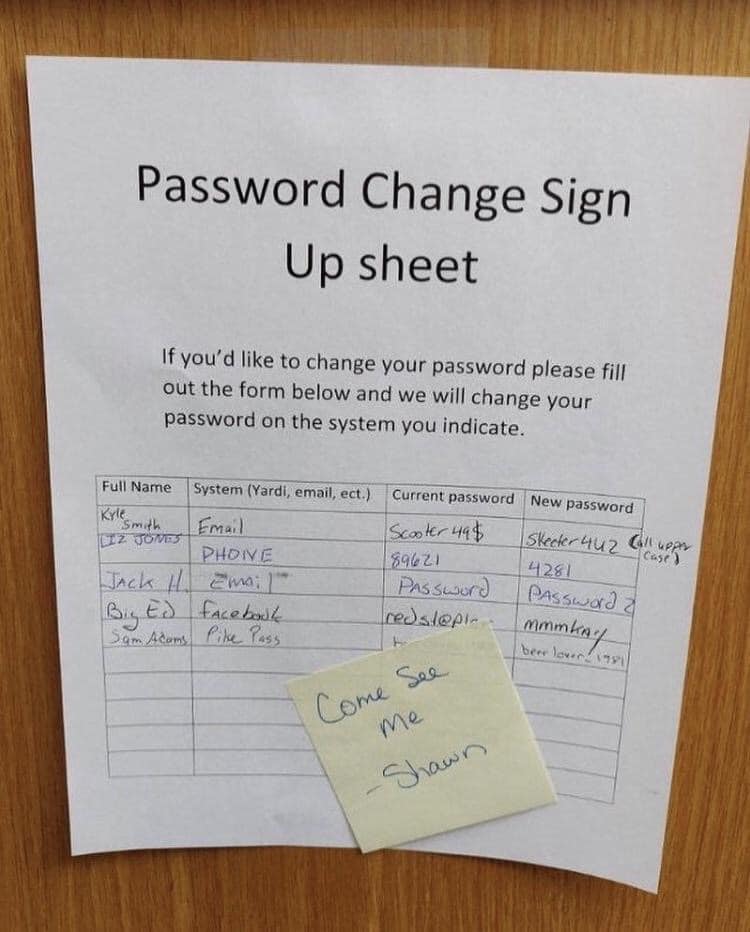 Password Change Sign
Up sheet
If you'd like to change your password please fill
out the form below and we will change your
password on the system you indicate.
Full Name System (Yardi, email, ect.) Current password New password
Kyle Smith Email Scooter49$ Skeeter442 (all upper case)
LIZ JONES PHONE 89621 4281
JAck H. Email PASSword PASSword 2
Big Ed facebook mmmkay
Sam Adams Pike Pass beer lover 1981
Come See
me
-Shawn